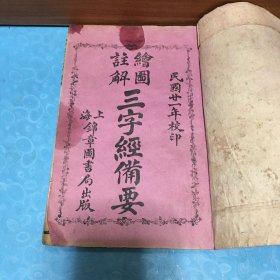 民國廿一年校印
繪圖
註解
三字經備要
上海錦章圖書局出版